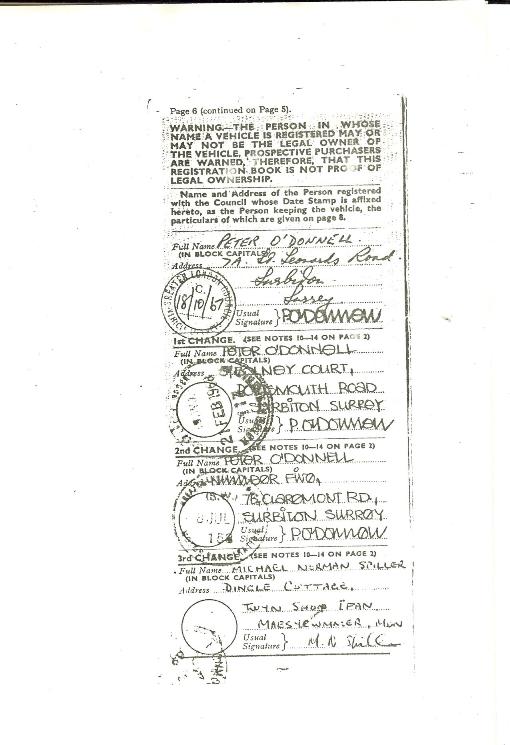 Page 6 (continued on Page 5).
WARNING.—THE PERSON IN WHOSE
NAME A VEHICLE IS REGISTERED MAY OR
MAY NOT BE THE LEGAL OWNER OF
THE VEHICLE, PROSPECTIVE PURCHASERS
ARE WARNED, THEREFORE, THAT THIS
REGISTRATION BOOK IS NOT PROOF OF
LEGAL OWNERSHIP.
Name and Address of the Person registered
with the Council whose Date Stamp is affixed
hereto, as the Person keeping the vehicle, the
particulars of which are given on page 8.
Full Name PETER O'DONNELL
(IN BLOCK CAPITALS)
Address 7A St. Leonards Road.
Surbiton
Surrey
GREATER LONDON COUNCIL
18/10/67
Usual
Signature } P.O'DONNELL
1ST CHANGE. (SEE NOTES 10—14 ON PAGE 2)
Full Name PETER O'DONNELL
(IN BLOCK CAPITALS)
Address COURT,
PORTSMOUTH ROAD
SURBITON SURREY
FEB 1968
Usual
Signature } P.O'DONNELL
2nd CHANGE. (SEE NOTES 10—14 ON PAGE 2)
Full Name PETER O'DONNELL
(IN BLOCK CAPITALS)
Address
CLAREMONT RD.,
SURBITON SURREY
JUL
Usual
Signature } P.O'DONNELL
3rd CHANGE. (SEE NOTES 10—14 ON PAGE 2)
Full Name MICHAEL NORMAN SPILLER
(IN BLOCK CAPITALS)
Address DINGLE COTTAGE,
MAESYCWMMER, MON
Usual
Signature } M. N. Spiller